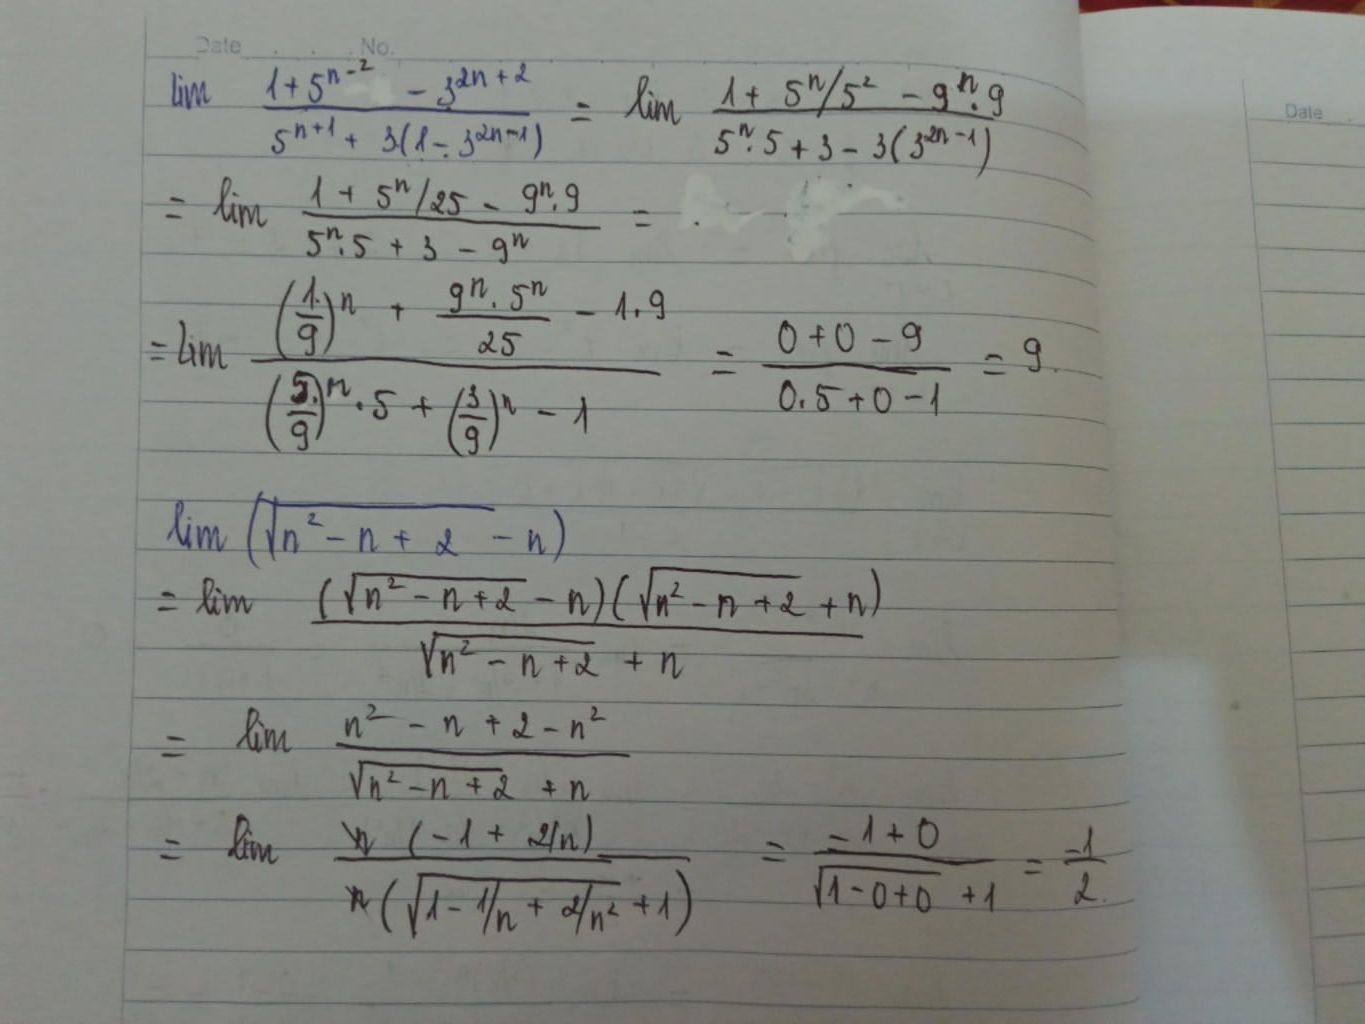 Date . . . No.
lim (1 + 5^(n-2) - 3^(2n+2)) / (5^(n+1) + 3(1 - 3^(2n-1))) = lim (1 + 5^n/5^2 - 9^n.9) / (5^n.5 + 3 - 3(3^(2n-1)))
= lim (1 + 5^n/25 - 9^n.9) / (5^n.5 + 3 - 9^n) =
= lim ((1/9)^n + (9^n.5^n)/25 - 1.9) / ((5/9)^n.5 + (3/9)^n - 1) = (0+0-9) / (0.5+0-1) = 9.
lim (√(n^2 - n + 2) - n)
= lim (√(n^2 - n + 2) - n)(√(n^2 - n + 2) + n) / (√(n^2 - n + 2) + n)
= lim (n^2 - n + 2 - n^2) / (√(n^2 - n + 2) + n)
= lim n(-1 + 2/n) / n(√(1 - 1/n + 2/n^2) + 1) = (-1+0) / (√(1-0+0) + 1) = -1/2.
Date .